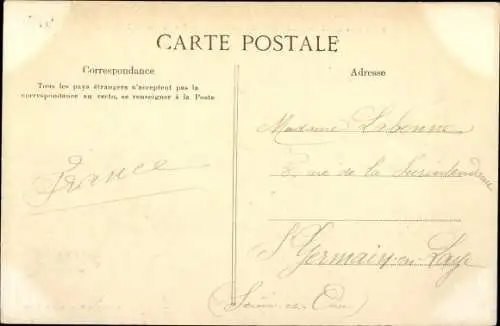 CARTE POSTALE
Correspondance
Tous les pays étrangers n'acceptent pas la
correspondance au recto, se renseigner à la Poste
Adresse
France
Madame Labonne
8, rue de la Surintendance
St Germain-en-Laye
(Seine-et-Oise)